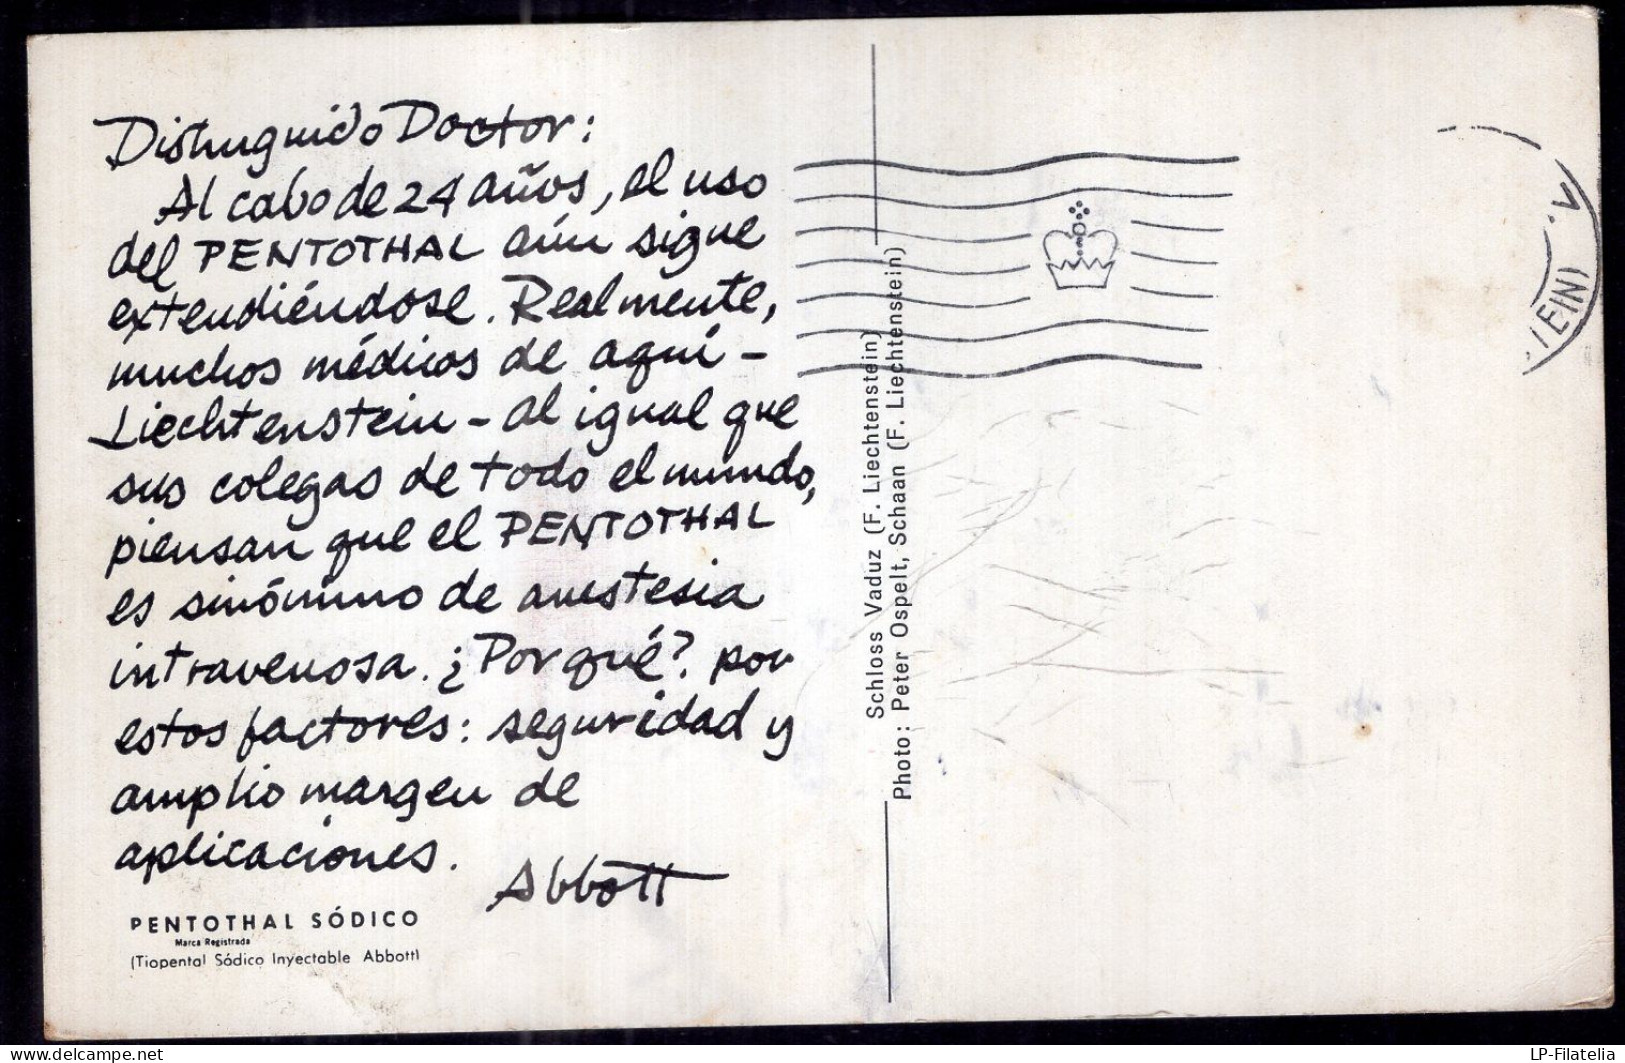 Distinguido Doctor:
Al cabo de 24 años, el uso
del PENTOTHAL aún sigue
extendiéndose. Realmente,
muchos médicos de aquí -
Liechtenstein - al igual que
sus colegas de todo el mundo,
piensan que el PENTOTHAL
es sinónimo de anestesia
intravenosa. ¿Por qué? por
estos factores: seguridad y
amplio margen de
aplicaciones.
Abbott
PENTOTHAL SÓDICO
Marca Registrada
(Tiopental Sódico Inyectable Abbott)
Schloss Vaduz (F. Liechtenstein)
Photo: Peter Ospelt, Schaan (F. Liechtenstein)
TEIN)
www.delcampe.net
LP-Filatelia